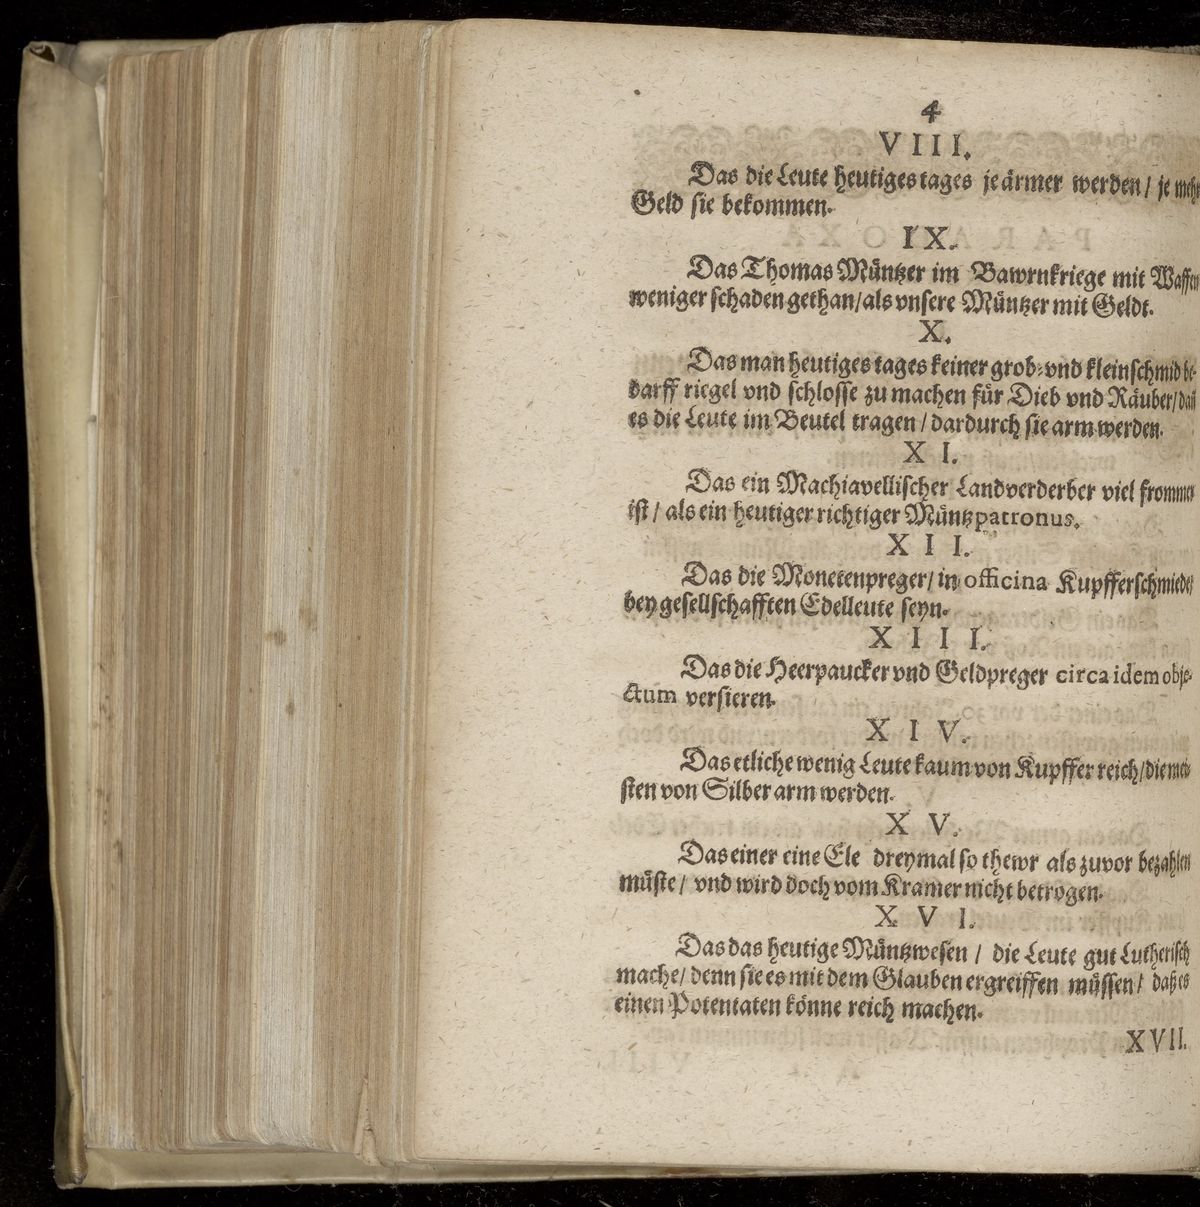 4
VIII.
Das die Leute heutiges tages je ärmer werden / je mehr
Geld sie bekommen.
IX.
Das Thomas Müntzer im Bawrnkriege mit Waffen
weniger schaden gethan / als vnsere Müntzer mit Geldt.
X.
Das man heutiges tages keiner grob- vnd kleinschmid be-
darff riegel vnd schlosse zu machen für Dieb vnd Räuber / daß
es die Leute im Beutel tragen / dardurch sie arm werden.
XI.
Das ein Machiavellischer Landverderber viel frommer
ist / als ein heutiger richtiger Müntzpatronus.
XII.
Das die Monetenpreger / in officina Kupfferschmiede /
bey gesellschafften Edelleute seyn.
XIII.
Das die Heerpaucker vnd Geldpreger circa idem obje-
ctum versieren.
XIV.
Das etliche wenig Leute kaum von Kupffer reich / die mei-
sten von Silber arm werden.
XV.
Das einer eine Ele dreymal so thewr als zuvor bezahlen
müste / vnd wird doch vom Kramer nicht betrogen.
XVI.
Das das heutige Müntzwesen / die Leute gut Lutherisch
mache / denn sie es mit dem Glauben ergreiffen müssen / daß es
einen Potentaten könne reich machen.
XVII.